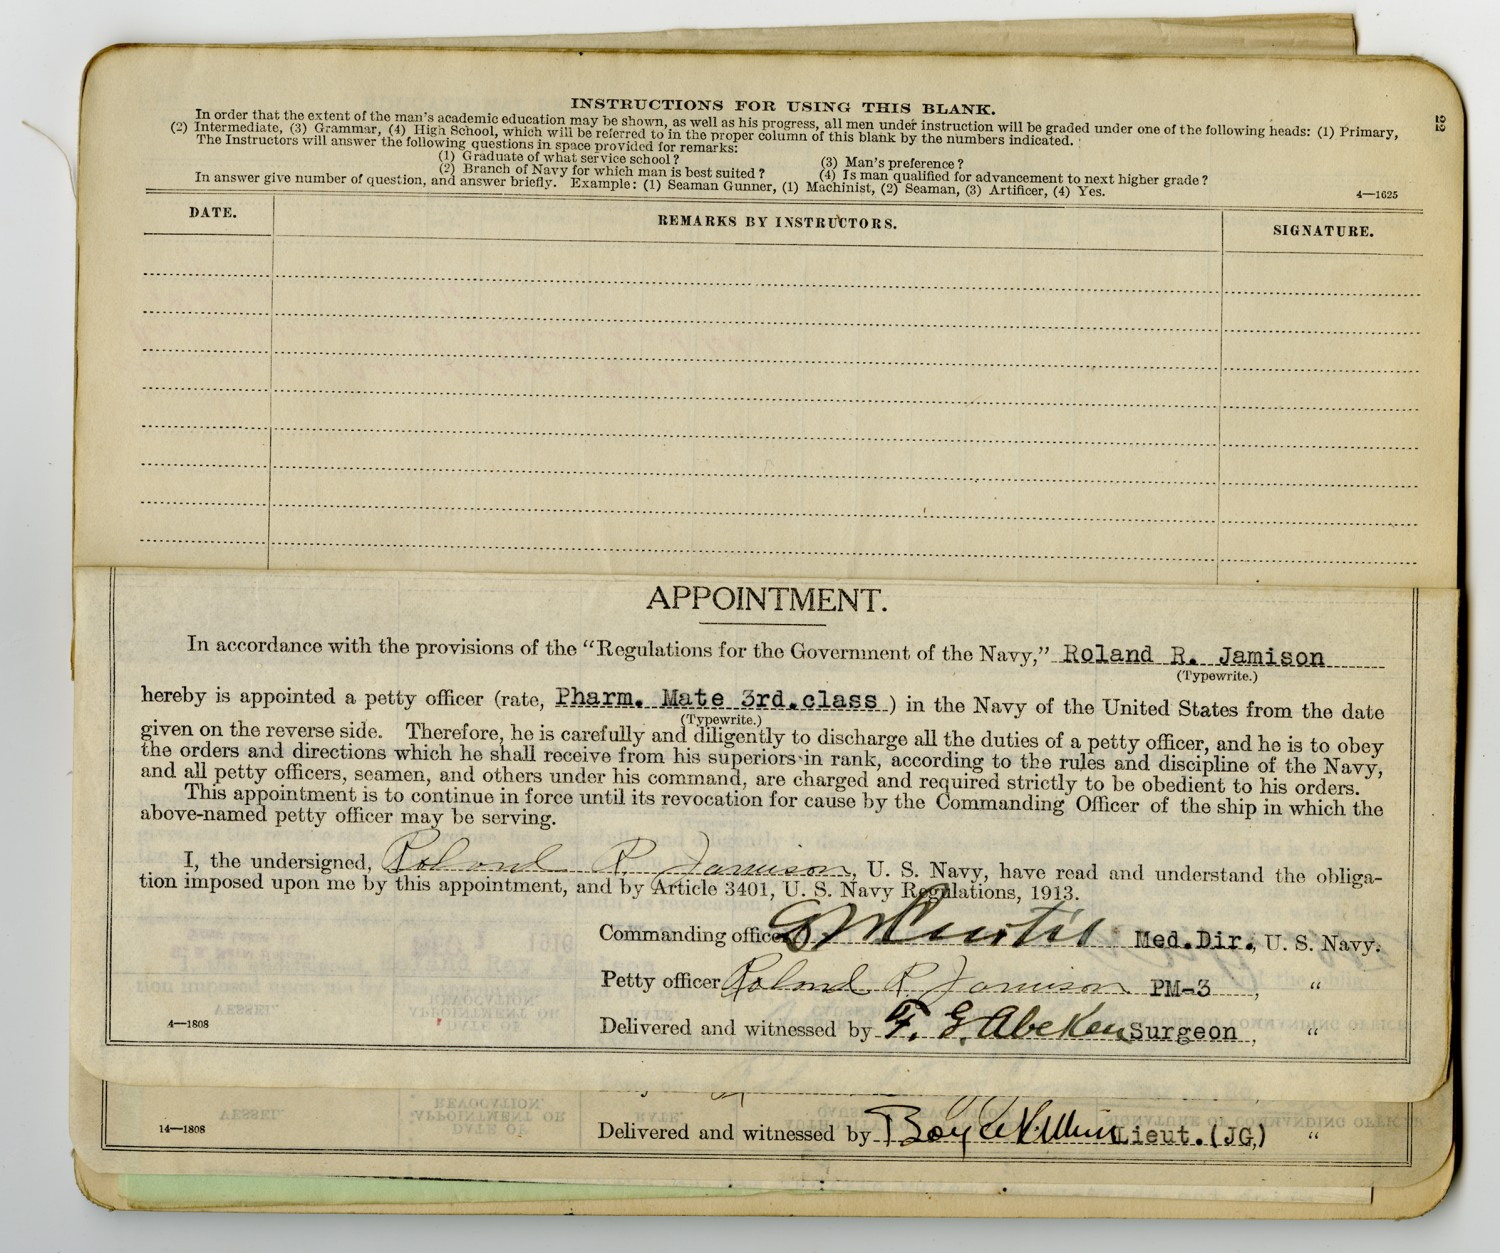 INSTRUCTIONS FOR USING THIS BLANK.
In order that the extent of the man's academic education may be shown, as well as his progress, all men under instruction will be graded under one of the following heads: (1) Primary,
(2) Intermediate, (3) Grammar, (4) High School, which will be referred to in the proper column of this blank by the numbers indicated.
The Instructors will answer the following questions in space provided for remarks:
(1) Graduate of what service school? (3) Man's preference?
(2) Branch of Navy for which man is best suited? (4) Is man qualified for advancement to next higher grade?
In answer give number of question, and answer briefly. Example: (1) Seaman Gunner, (1) Machinist, (2) Seaman, (3) Artificer, (4) Yes.
4—1625
DATE. REMARKS BY INSTRUCTORS. SIGNATURE.
APPOINTMENT.
In accordance with the provisions of the "Regulations for the Government of the Navy," Roland R. Jamison
(Typewrite.)
hereby is appointed a petty officer (rate, Pharm. Mate 3rd.class) in the Navy of the United States from the date
(Typewrite.)
given on the reverse side. Therefore, he is carefully and diligently to discharge all the duties of a petty officer, and he is to obey
the orders and directions which he shall receive from his superiors in rank, according to the rules and discipline of the Navy,
and all petty officers, seamen, and others under his command, are charged and required strictly to be obedient to his orders.
This appointment is to continue in force until its revocation for cause by the Commanding Officer of the ship in which the
above-named petty officer may be serving.
I, the undersigned, Roland R. Jamison, U. S. Navy, have read and understand the obliga-
tion imposed upon me by this appointment, and by Article 3401, U. S. Navy Regulations, 1913.
Commanding officer Curtis Med.Dir., U. S. Navy.
Petty officer Roland R. Jamison PM-3, "
Delivered and witnessed by F. G. Abeken Surgeon, "
4—1808
Delivered and witnessed by Lieut.(JG,) "
14—1808